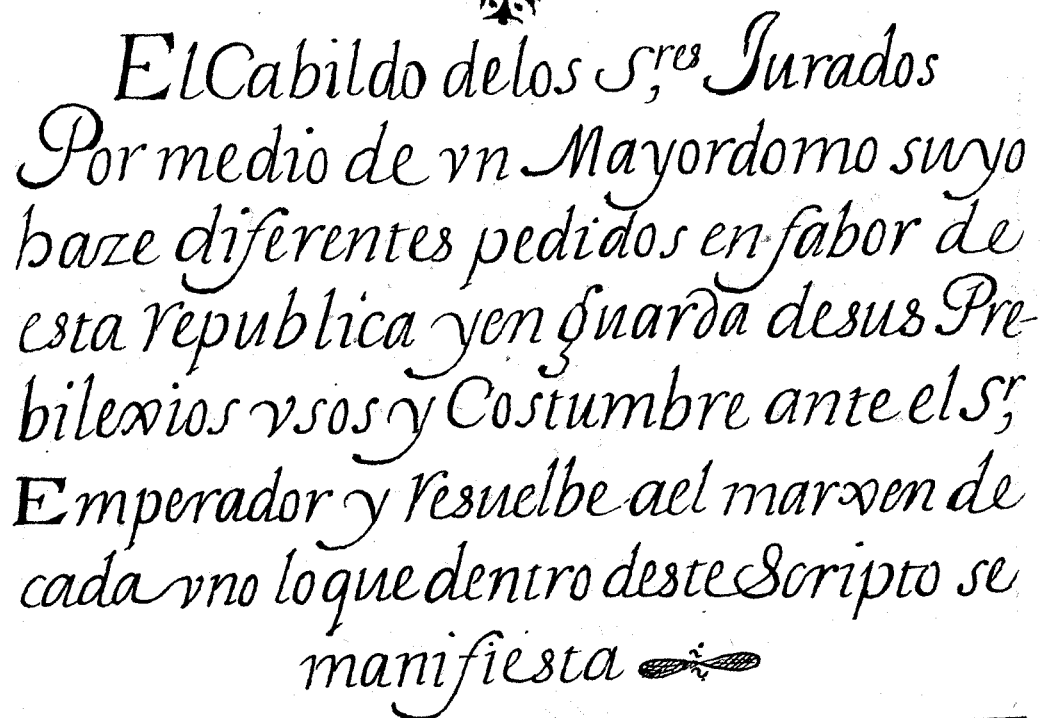 El Cabildo de los S.res Jurados
Por medio de vn Mayordomo suyo
haze diferentes pedidos en fabor de
esta republica y en guarda de sus Pre-
bilexios vsos y Costumbre ante el S.r
Emperador y resuelbe a el marxen de
cada vno lo que dentro deste Scripto se
manifiesta